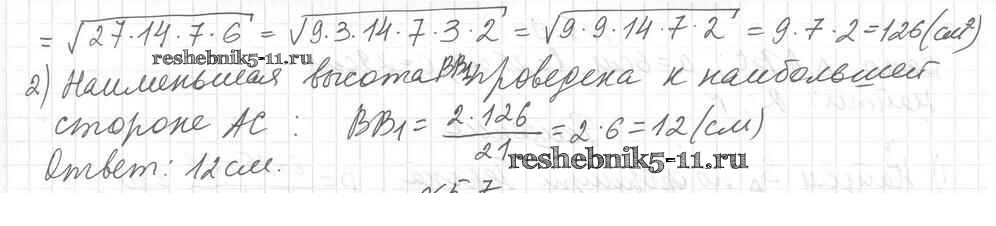 = √27·14·7·6 = √9·3·14·7·3·2 = √9·9·14·7·2 = 9·7·2=126(см²)
reshebnik5-11.ru
2) Наименьшая высота BB₁ проведена к наибольшей
стороне AC : BB₁ = 2·126/21 = 2·6 = 12 (см)
reshebnik5-11.ru
Ответ: 12 см.